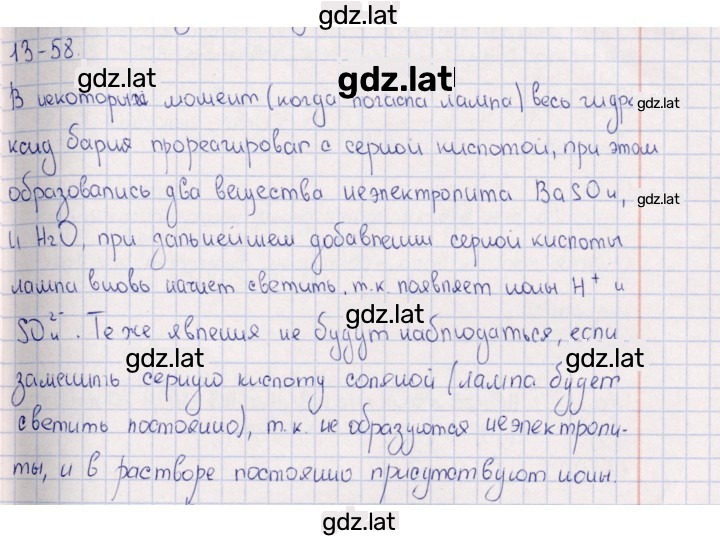 gdz.lat
13-58.
gdz.lat
gdz.lat
В некоторый момент (когда погасла лампа) весь гидро
gdz.lat
ксид бария прореагировал с серной кислотой, при этом
образовались два вещества неэлектролита BaSO₄,
gdz.lat
и H₂O, при дальнейшем добавлении серной кислоты
лампа вновь начнет светить, т.к. появляет ионы H⁺ и
gdz.lat
SO₄²⁻. Те же явления не будут наблюдаться, если
gdz.lat
gdz.lat
заменить серную кислоту соляной (лампа будет
светить постоянно), т.к. не образуются неэлектроли-
gdz.lat
ты, и в растворе постоянно присутствуют ионы.
gdz.lat